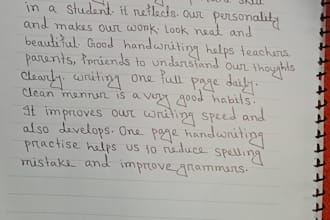 in a student. It reflects. Our personality
and makes our work. Look neat and
beautiful. Good handwriting helps teachers
parents, friends to understand our thoughts
clearly. writing one full page daily.
clean manner is a very good habits.
It improves our writing speed and
also develops. One page handwriting
practise helps us to reduce spelling
mistake and improve grammers.